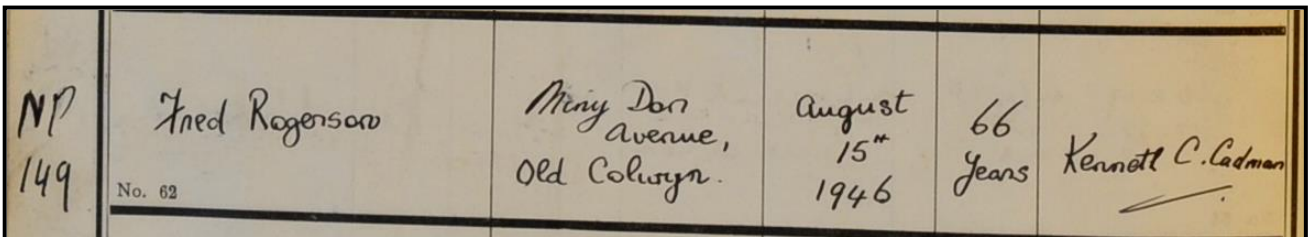 NP
149
Fred Rogerson
No. 62
Miny Don
Avenue,
Old Colwyn.
August
15th
1946
66
Years
Kenneth C. Cadman